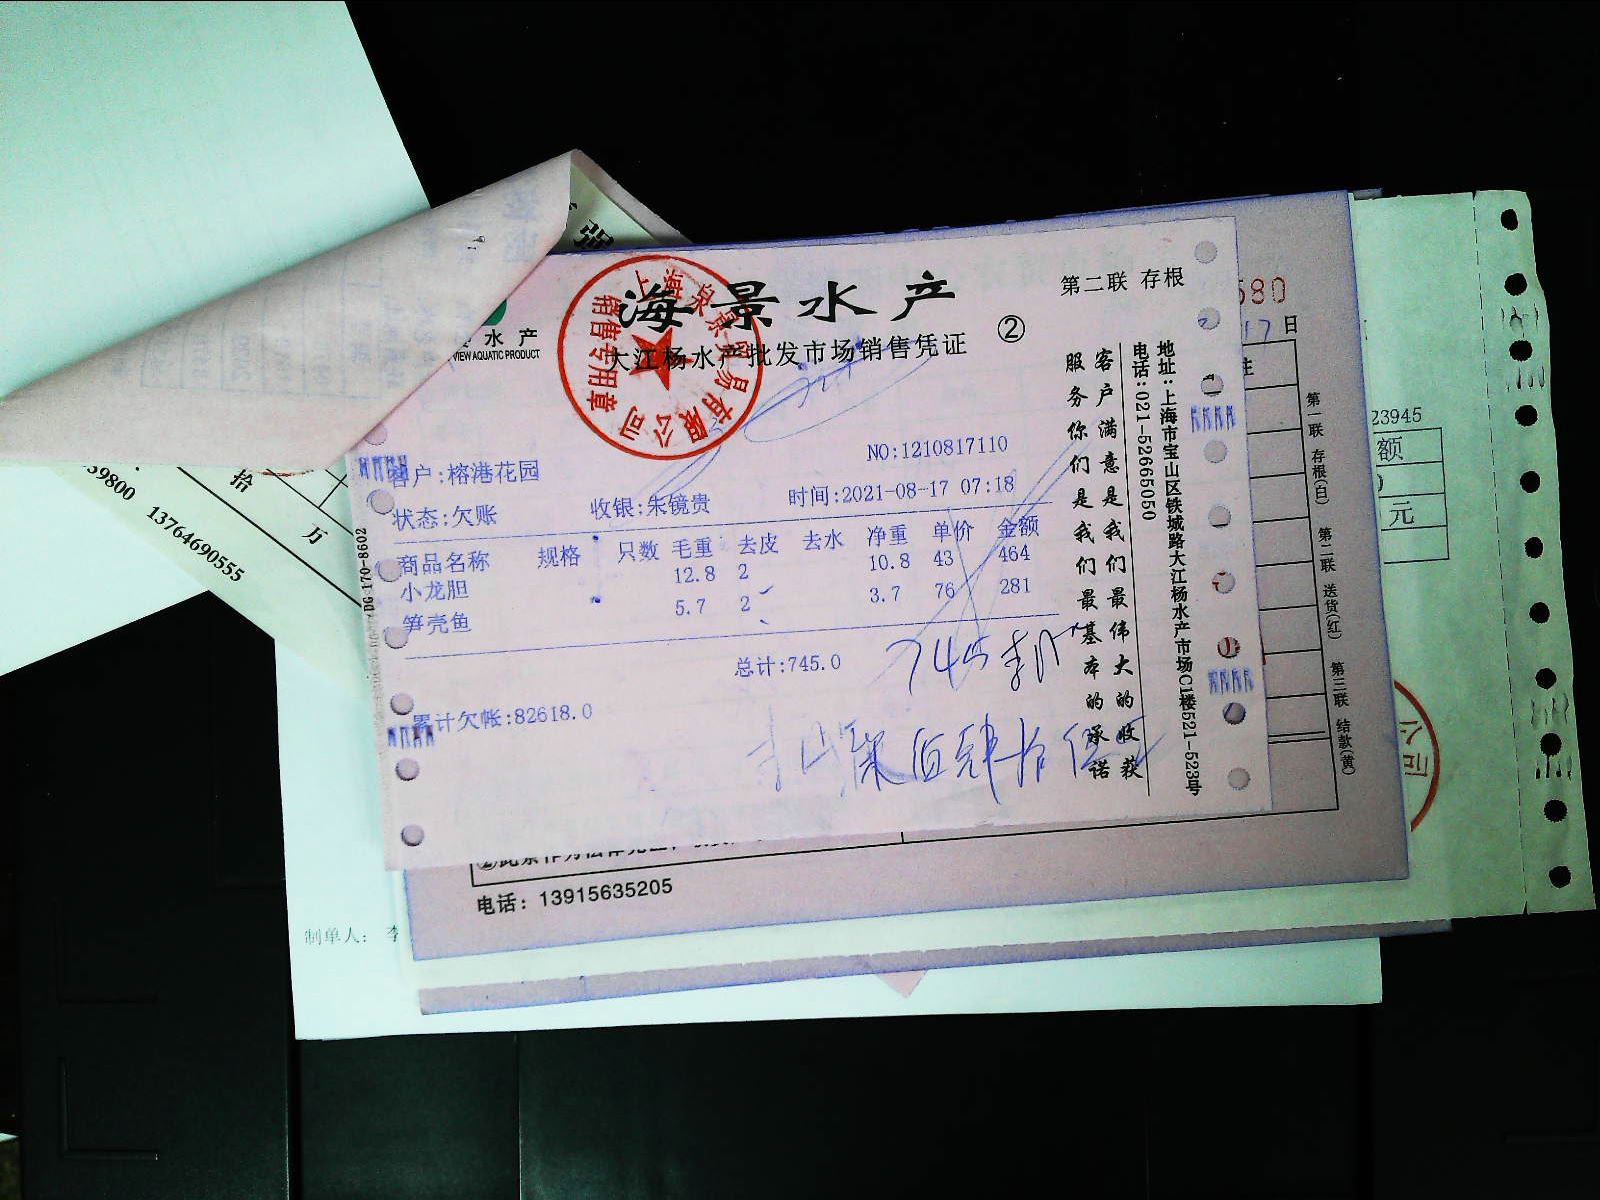 强
海景水产
第二联 存根
水产
VIEW AQUATIC PRODUCT
大江杨水产批发市场销售凭证
②
上海泉景贸易有限公司
销售专用章
580
17日
NO:1210817110
户:榕港花园
状态:欠账 收银:朱镜贵 时间:2021-08-17 07:18
商品名称 规格 只数 毛重 去皮 去水 净重 单价 金额
小龙胆 12.8 2 10.8 43 464
笋壳鱼 5.7 2 3.7 76 281
总计:745.0
745
累计欠帐:82618.0
客户满意是我们最伟大的收获
服务你们是我们最基本的承诺
地址:上海市宝山区铁城路大江杨水产市场C1楼521-523号
电话:021-52665050
第一联 存根(白) 第二联 送货(红) 第三联 结款(黄)
23945
额
元
拾 万
39800 13764690555
DG-170-8602
电话: 13915635205
制单人: 李
公司